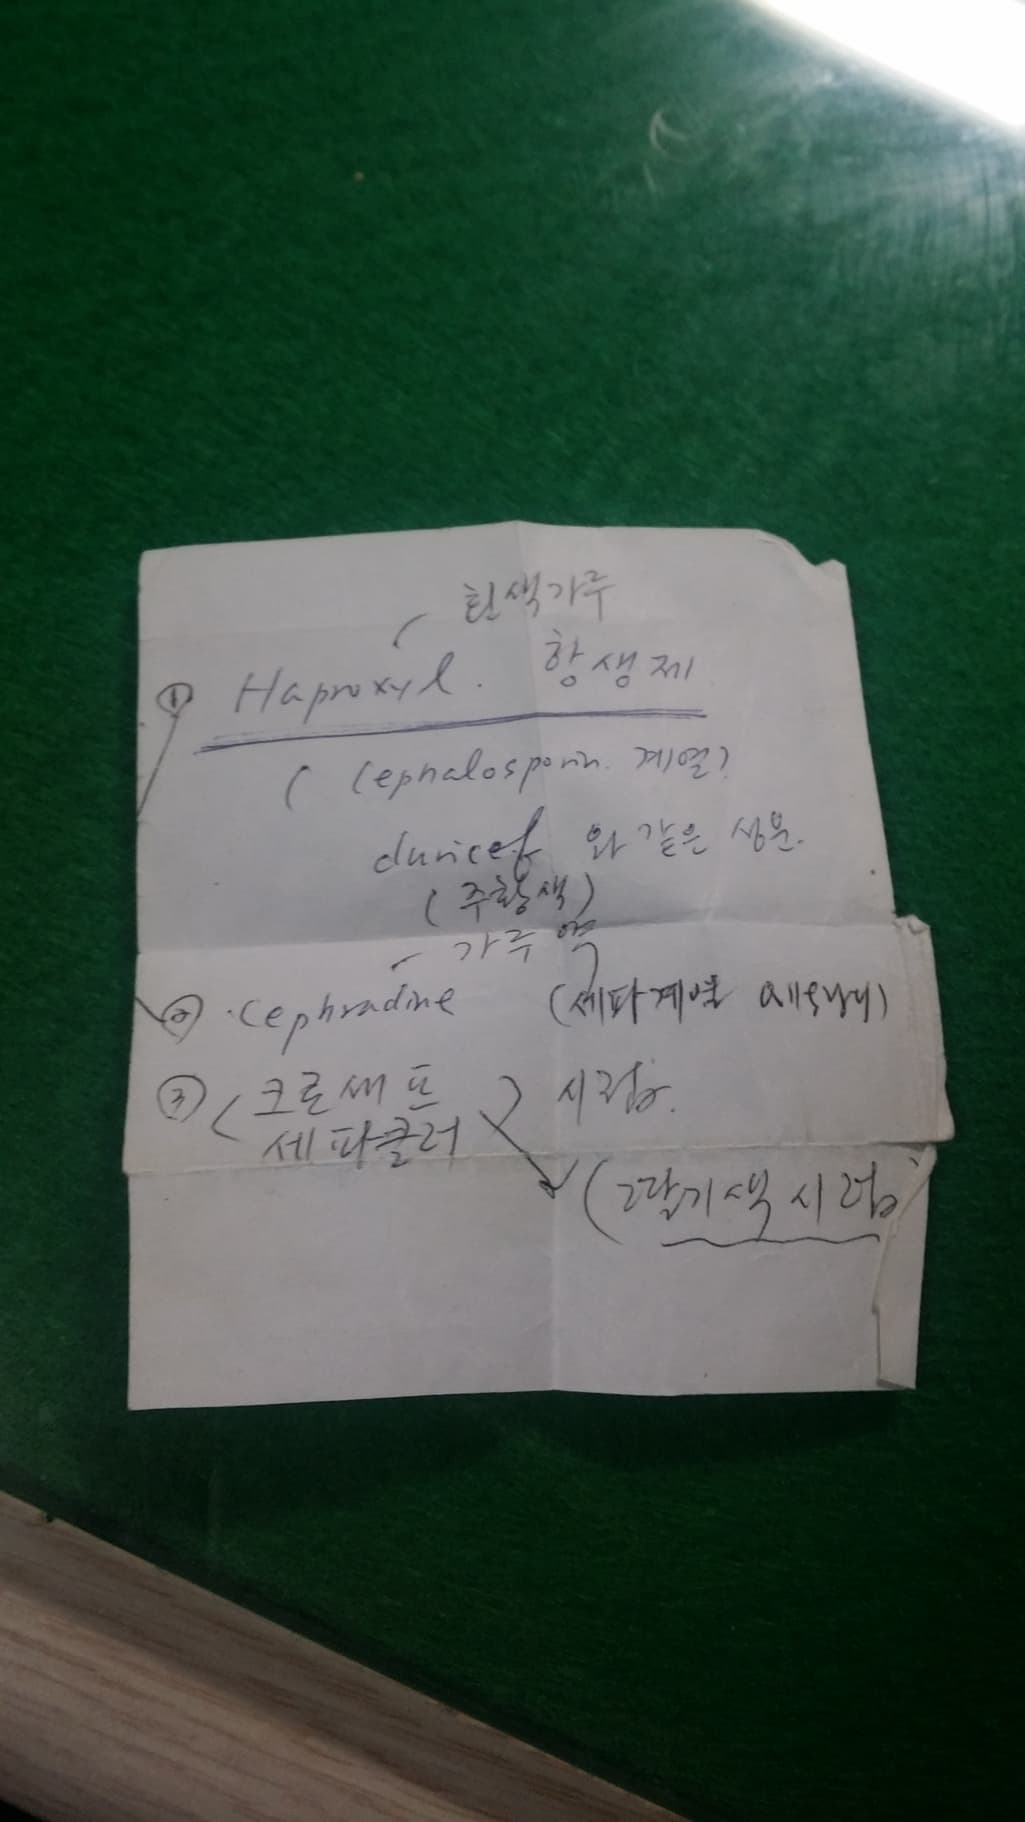 흰색가루
① Haproxyl. 항생제
( Cephalosporin. 계열?
duricef 와 같은 성분.
(주황색)
가루약
② Cephradine (세파계열
③ < 크로세프 > 시럽.
세파클러
(딸기색 시럽